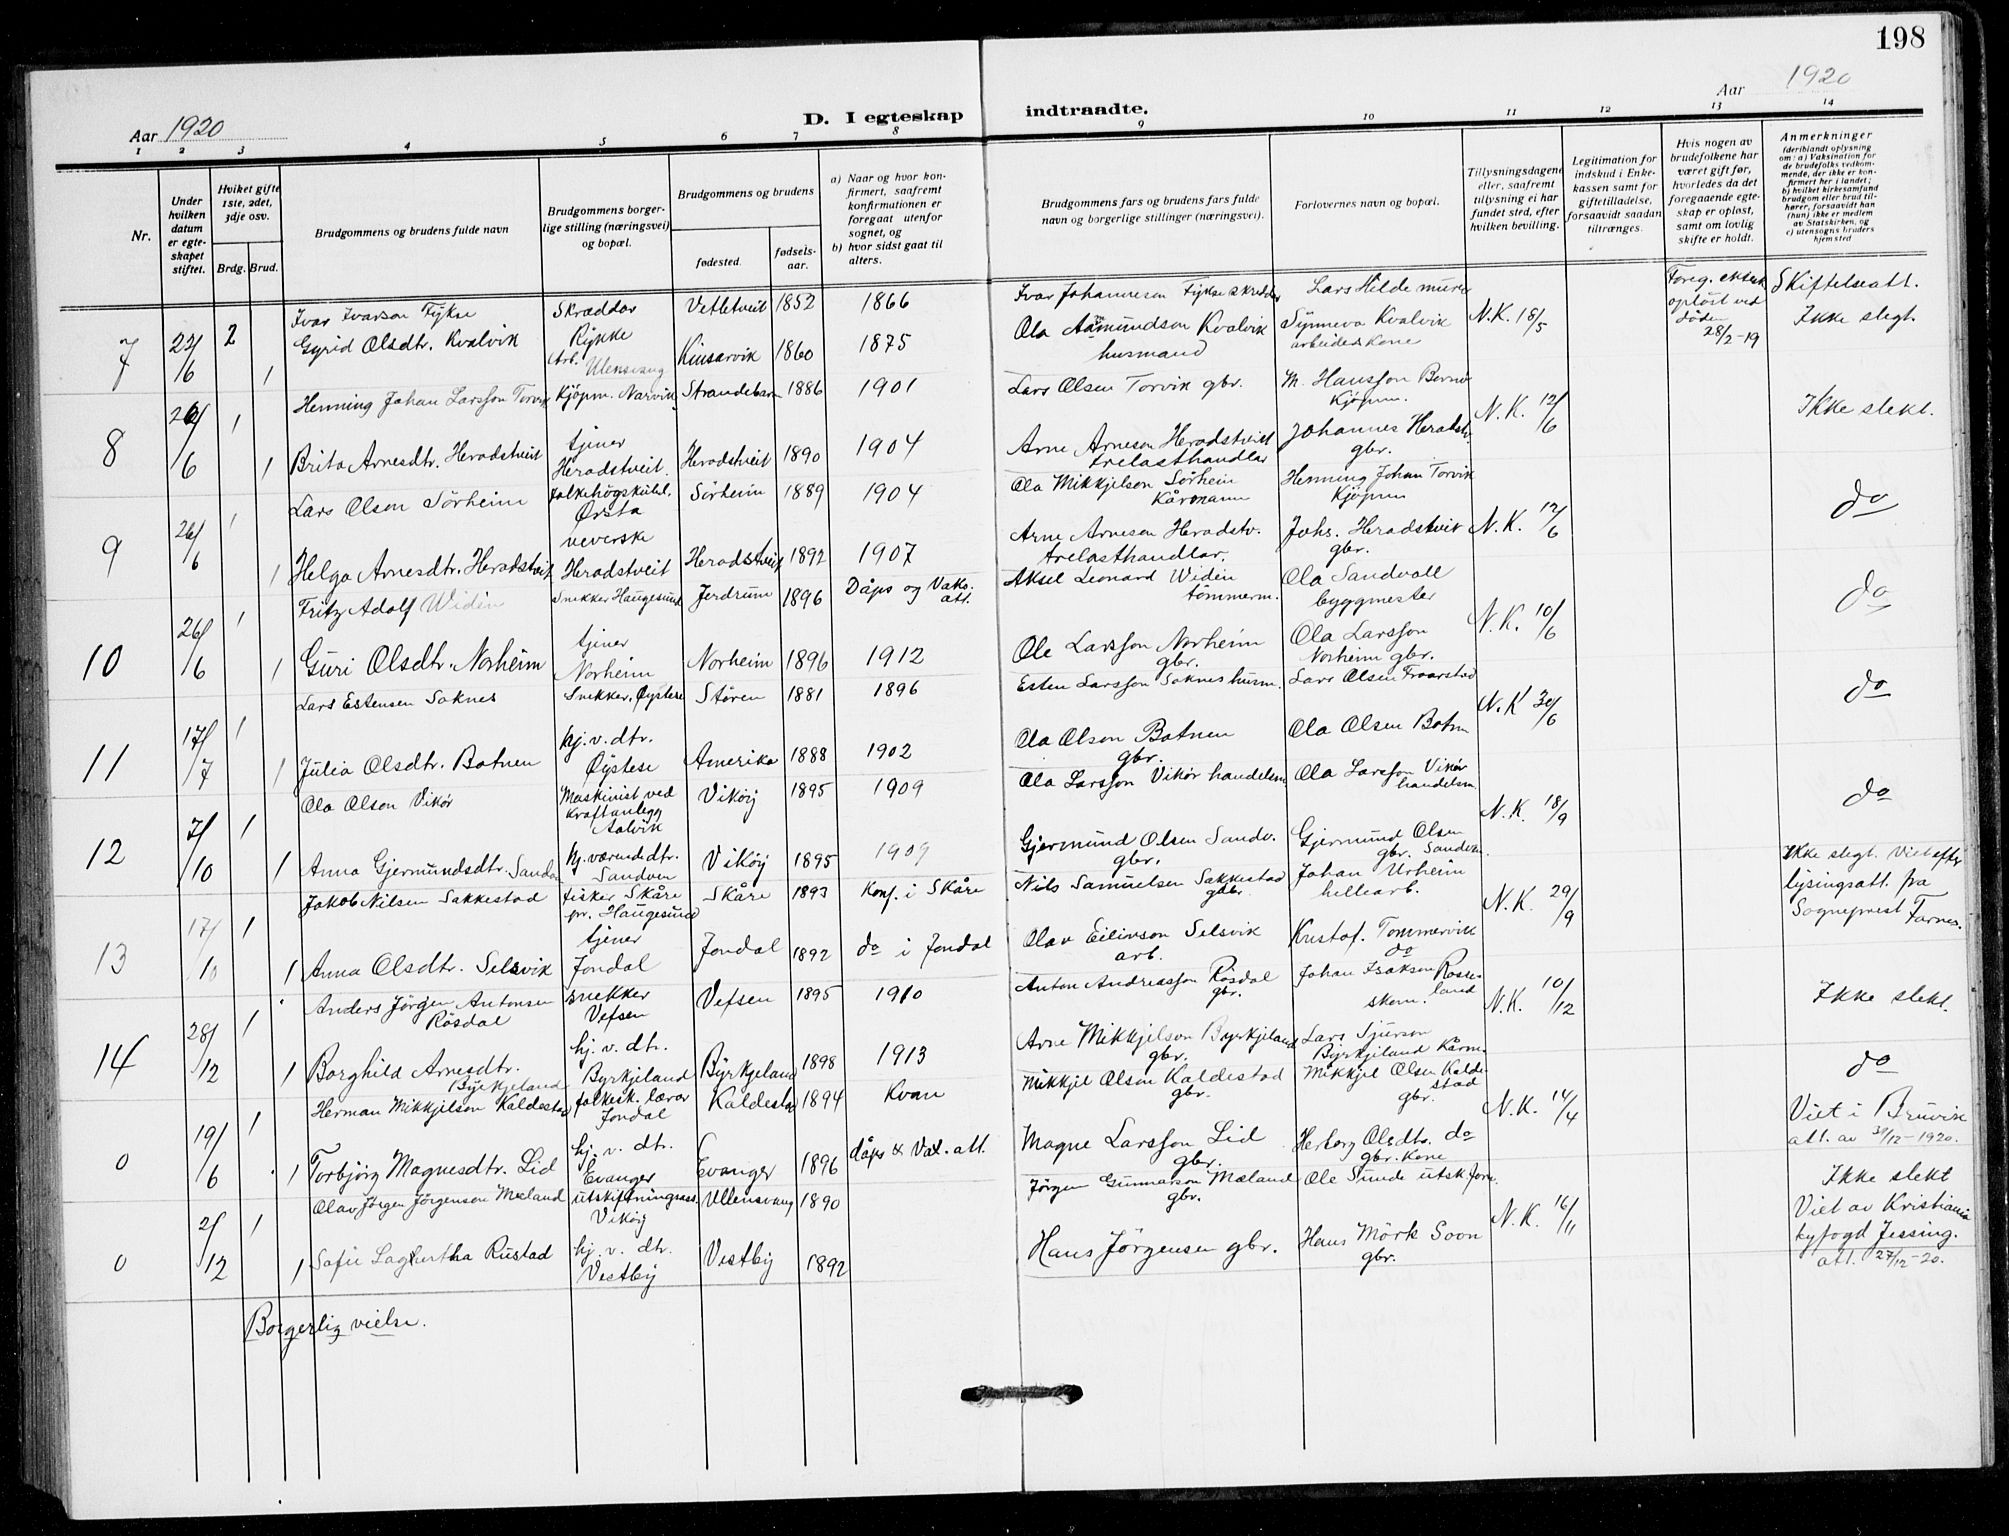 198
Aar 1920
D. I egteskap
indtraadte.
Aar 1920
1 2 3 4 5 6 7 8 9 10 11 12 13 14
Nr.
Under hvilken datum er egteskapet stiftet.
Hviket gifte 1ste, 2det, 3dje osv.
Brdg. Brud.
Brudgommens og brudens fulde navn
Brudgommens borgerlige stilling (næringsvei) og bopæl.
Brudgommens og brudens
fødested.
fødsels-aar.
a) Naar og hvor konfirmert, saafremt konfirmationen er foregaat utenfor sognet, og
b) hvor sidst gaat til alters.
Brudgommens fars og brudens fars fulde navn og borgerlige stillinger (næringsvei).
Forlovernes navn og bopæl.
Tillysningsdagene eller, saafremt tillysning ei har fundet sted, efter hvilken bevilling.
Legitimation for indskud i Enkekassen samt for giftetilladelse, forsaavidt saadan tiltrænges.
Hvis nogen av brudefolkene har været gift før, hvorledes da det foregaaende egteskap er opløst, samt om lovlig skifte er holdt.
Anmerkninger (deriblandt oplysning om: a) Vaksination for de brudefolks vedkommende, der ikke er konfirmert her i landet; b) hvilket kirkesamfund brudgom eller brud tilhører, forsaavidt han (hun) ikke er medlem av Statskirken, og c) utensogns bruders hjemsted
7 22/6 2 Ivar Ivarson Fykse Skræddar Rykke Vetletveit 1852 1866 Ivar Johanneson Fykse skredder Lars Hilde murer N.K. 18/5 Foreg. ektesk. opløst ved døden 28/2-19 Skifteseatt. Ikke slegt.
1 Gyrid Olsdtr. Kvalvik Arb. Ulensvang Kinsarvik 1860 1875 Ola Aamundson Kvalvik husmand Synneva Kvalvik arbeiderskone
8 26/6 1 Henning Johan Larsson Torvik Kjøpm. Narvik Strandebarm 1886 1901 Lars Olsen Torvik gbr. M. Hansson Kjøpm. N.K. 12/6 Ikke slekt.
1 Brita Arnesdtr. Heradstveit tjener Heradstveit. Heradstveit 1890 1904 Arne Arneson Heradstveit trelasthandlar Johannes Heradstv. gbr.
9 26/6 1 Lars Olson Sörheim Folkehögskulel. Ørsta Sörheim 1889 1904 Ola Mikkjelson Sørheim Kårmann Henning Johan Torvik Kjøpm N.K. 12/6 do
1 Helga Arnesdtr. Heradstveit veverske Heradstveit Heradstveit 1892 1907 Arne Arneson Heradstv. trelasthandlar. Johs. Heradstveit gbr.
10 26/6 1 Fritz Adolf Widén Snekker Haugesund Jerdrum 1896 Dåps og Vaks. att. Aksel Leonard Widén tömmerm. Ola Sandvoll byggmester N.K. 10/6 do
1 Guri Olsdtr. Norheim tjener Norheim Norheim 1896 1912 Ole Larsson Norheim gbr. Ola Larsson Norheim gbr.
11 17/7 1 Lars Estensen Soknes Snekker, Øystese Støren 1881 1896 Esten Larsson Soknes husm. Lars Olsen Traarstad N.K 30/6 do
1 Julia Olsdtr. Botnen hj.v.dtr. Øystese Amerika 1888 1902 Ola Olson Botnen gbr. Ola Olsen Botn
12 7/10 1 Ola Olson Vikør Maskinist ved Kraftanlegg Aalvik Vikøy 1895 1909 Ola Larsson Vikør handelsm. Ola Larsson Vikør handelsm. N.K. 18/9 do
1 Anna Gjermundsdtr. Sandven hj. værende dtr. Sandven Vikøy 1895 1909 Gjermund Olsen Sandv. gbr. Gjermund Olsen gbr. Sandven.
13 17/10 1 Jakob Nilsen Sakkestad fisker Skåre pr. Haugesund Skåre 1893 Konf. i Skåre Nils Samuelsen Sakkestad gbr. Johan Urheim hellearb. N.K. 29/9 Ikke slegt. Viet efter lysingsatt. fra Sogneprest Farnes.
1 Anna Olsdtr. Selsvik tjener Jondal Jondal 1892 do i Jondal Olav Eilivson Selsvik arb. Kristof. Tommervik do
14 28/12 1 Anders Jörgen Antonsen Rösdal snekker Vefsen Vefsen 1895 1910 Anton Andreassen Rösdal gbr. Johan Isaksen Rosseland skom. N.K. 10/12 Ikke slekt.
1 Borghild Arnesdtr. Byrkjeland hj. v. dtr. Byrkjeland Byrkjeland 1898 1913 Arne Mikkjelson Byrkjeland gbr. Lars Sjurson Byrkjeland Kårm. do
0 19/6 1 Herman Mikkjelson Kaldestad folkesk. lærar Jondal Kaldestad 1894 Kvam Mikkjel Olsen Kaldestad gbr. Mikkjel Olsen Kaldestad gbr. N.K. 14/4 Viet i Bruvik att. av 31/12-1920.
1 Torbjörg Magnesdtr. Lid hj. v. dtr. Evanger Evanger 1896 dåps & Vax. att. Magne Larsson Lid gbr. Herborg Olsdtr. do gbr. kone
0 2/12 1 Olav Jörgen Jörgenson Mæland utskiftningsass. Vikøy Ullensvang 1890 Jörgen Gunnarson Mæland gbr. Ole Sunde utsk.form. N.K. 16/11 Ikke slekt Viet av Kristiania byfogd Jessing. att. 27/12-20.
1 Sofie Lagertha Rustad hj. v. dtr. Vestby Vestby 1892 Hans Jörgensen gbr. Hans Mörk Soon gbr.
Borgerlig vielse.